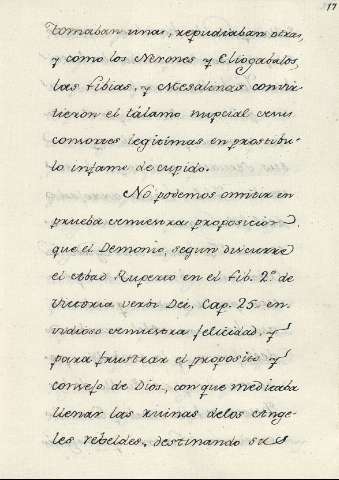 17
tomaban unas, repudiaban otras,
y como los Nerones y Eliogabalos,
las Libias, y Mesalinas convir-
tieron el talamo nupcial
consortes legitimas en prostibu-
lo infame de cupido.
No podemos omitir en
prueba denuestra proposicion,
que el Demonio, segun discurre
el Abad Ruperto en el lib. 2º de
Victoria verbi Dei, Cap. 25 en-
vidioso denuestra felicidad, y
para frustrar el proposito y
consejo de Dios, con que medicaba
llenar las ruinas delos Ange-
les rebeldes, destinando su